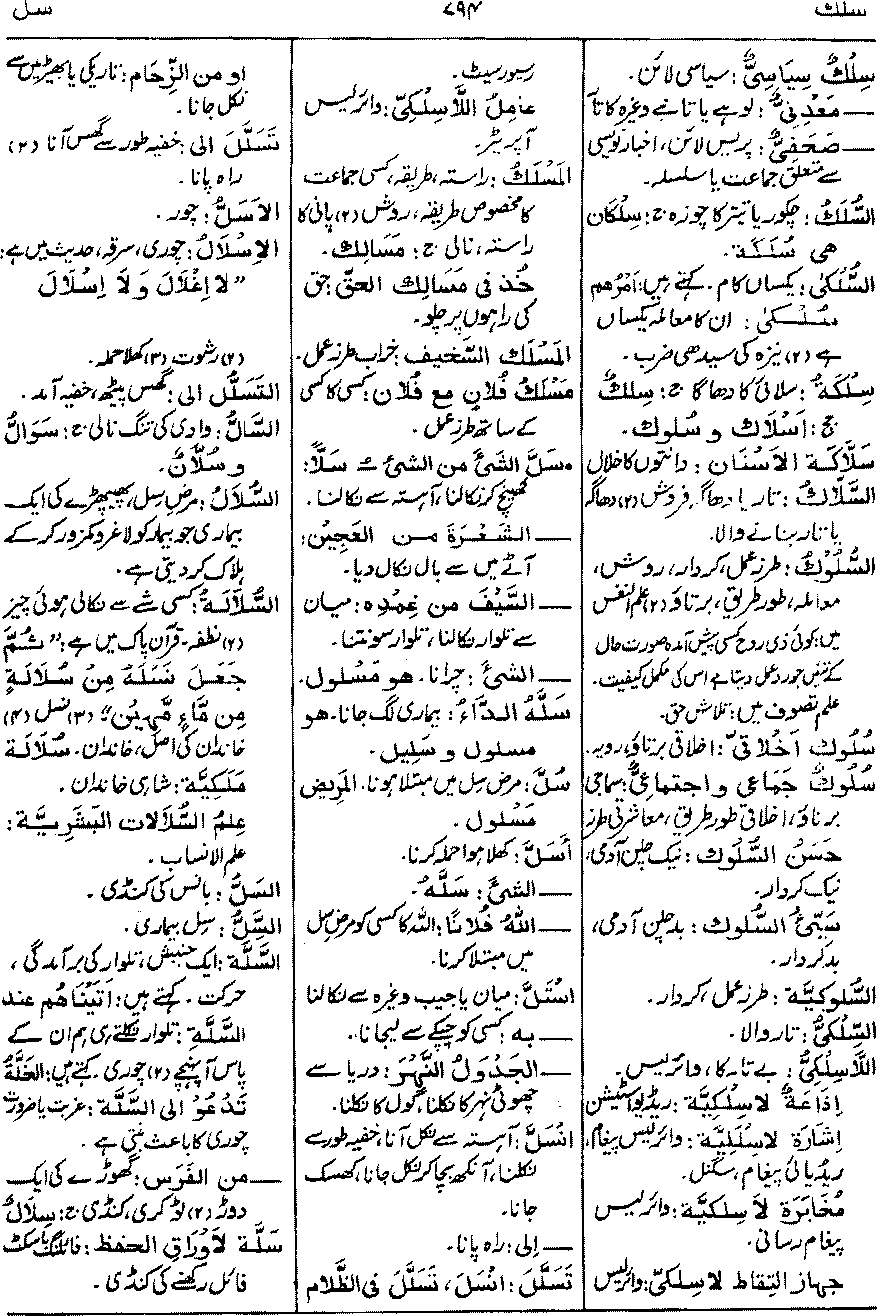 سلك
۷۹۴
سل
سِلْكٌ سِیَاسِیٌّ: سیاسی لائن۔
— مَعْدِنِیٌّ: لوہے یا تانبے وغیرہ کا تار
— صَحَفِیٌّ: پریس لائن، اخبار نویسی
سے متعلق جماعت یا سلسلہ۔
السُّلَكُ: چکور یا تیتر کا چوزہ ج: سِلْكَان
ھی سُلَكَة۔
السُّلْكٰی: یکساں کام۔ کہتے ہیں: اَمْرُھم
سُلْکٰی: ان کا معاملہ یکساں
ہے (۲) نیزہ کی سیدھی ضرب۔
سِلْكَةٌ: سلائی کا دھاگا ج: سِلْكٌ
جج: اَسْلَاك و سُلوك۔
سَلَّاكَة الاَسْنَان: دانتوں کا خلال
السَّلَّاكُ: تار یا دھاگہ فروش (۲) دھاگہ
یا تار بنانے والا۔
السُّلُوْكُ: طرز عمل، کردار، روش،
معاملہ، طور طریق، برتاؤ (۲) علم النفس
میں: کوئی ذی روح کسی پیش آمدہ صورت حال
کے تئیں جو ردعمل دیتا ہے اس کی مکمل کیفیت۔
علم تصوف میں: تلاش حق۔
سُلُوك اَخْلَاقیّ: اخلاقی برتاؤ، رویہ۔
سُلُوكٌ جَمَاعِی و اجتماعیٌّ: سماجی
برتاؤ، اخلاقی طور طریق، معاشرتی طرز
حَسَنُ السُّلُوك: نیک چلن آدمی،
نیک کردار۔
سَیِّئُ السُّلوك: بد چلن آدمی،
بد کردار۔
السُّلوکیَّة: طرز عمل، کردار۔
السِّلْكیُّ: تار والا۔
اللَّاسِلْكیُّ: بے تار کا، وائرلیس۔
اِذَاعَةٌ لاسِلْكِیَّة: ریڈیو اسٹیشن
اِشَارَة لاسِلْکِیَّة: وائرلیس پیغام،
ریڈیائی پیغام، سگنل۔
مُخَابَرَة لَاسِلكیَّة: وائرلیس
پیغام رسانی۔
جِہاز التِقاط لاسِلکیّ: وائرلیس
ریسور سیٹ۔
عامِلُ اللَّاسِلْكِیّ: وائرلیس
آپریٹر۔
المَسْلَكُ: راستہ، طریقہ، کسی جماعت
کا مخصوص طریقہ، روش (۲) پانی کا
راستہ، نالی ج: مَسَالِك۔
خُذ فی مَسَالِك الحَقّ: حق
کی راہوں پر چلو۔
المَسْلَك السَّخِیف: خراب طرز عمل۔
مَسْلَكُ فُلَانٍ مع فُلَان: کسی کا کسی
کے ساتھ طرز عمل۔
• سَلَّ الشَّیْءَ من الشیْءِ ـُ سَلًّا:
کھینچ کر نکالنا، آہستہ سے نکالنا۔
— الشَّعْرَةَ مـن العَجِیْن:
آٹے میں سے بال نکال دیا۔
— السَّیْفَ من غِمْدِه: میان
سے تلوار نکالنا، تلوار سونتنا۔
— الشیْءَ: چرانا۔ ھو مَسْلُول۔
سَلَّهُ الدَّاءُ: بیماری لگ جانا۔ ھو
مسلول و سَلِیل۔
سُلَّ: مرض سِل میں مبتلا ہونا۔ المَرِیض
مَسْلُول۔
أَسَلَّ: کھلا ہوا حملہ کرنا۔
— الشیْءَ: سَلَّهُ۔
— اللهُ فُلَانًا: اللہ کا کسی کو مرض سِل
میں مبتلا کرنا۔
اسْتَلَّ: میان یا جیب وغیرہ سے نکالنا
— بِه: کسی کو چپکے سے لیجانا۔
— الجَدْوَلُ النَّھْرَ: دریا سے
چھوٹی نہر کا نکلنا، گول کا نکلنا۔
انْسَلَّ: آہستہ سے نکل آنا، خفیہ طور سے
نکلنا، آنکھ بچا کر نکل جانا، کھسک
جانا۔
— اِلی: راہ پانا۔
تَسَلَّلَ: انْسَلَّ، تَسَلَّلَ فی الظَّلام
او من الزِّحَام: تاریکی یا بھیڑ میں سے
نکل جانا۔
تَسَلَّلَ الی: خفیہ طور سے گھس آنا (۲)
راہ پانا۔
الاَسَلُّ: چور۔
الاِسْلَالُ: چوری، سرقہ، حدیث میں ہے:
”لا اِغْلَالَ وَ لَا اِسْلَالَ
(۲) رشوت (۳) کھلا حملہ۔
التَّسَلُّل الی: گھس پیٹھ، خفیہ آمد۔
السَّالُّ: وادی کی تنگ نالی ج: سَوَالُّ
و سُلَّانٌ۔
السُّلَالُ: مرضِ سِل، پھیپھڑے کی ایک
بیماری جو بیمار کو لاغر و کمزور کر کے
ہلاک کر دیتی ہے۔
السُّلَالَةُ: کسی شے سے نکالی ہوئی چیز
(۲) نطفہ۔ قرآن پاک میں ہے: ”ثُمَّ
جَعَلَ نَسْلَهُ مِنْ سُلَالَةٍ
مِن مَّاءٍ مَّھِیْن“ (۳) نسل (۴)
خاندان کی اصل، خاندان۔ سُلَالَة
مَلَکِیَّة: شاہی خاندان۔
عِلمُ السُّلَالات البَشَرِیَّة:
علم الانساب۔
السَلُّ: بانس کی کنڈی۔
السِّلُّ: سِل بیماری۔
السَّلَّة: ایک جنبش، تلوار کی برآمدگی،
حرکت۔ کہتے ہیں: اَتَیْنَاھُم عند
السَّلَّةِ: تلوار نکلتے ہی ہم ان کے
پاس آپہنچے (۲) چوری۔ کہتے ہیں: الخَلَّةُ
تَدْعُوْ الی السَّلَّة: غربت یا ضرورت
چوری کا باعث بنتی ہے۔
— من الفَرَس: گھوڑے کی ایک
دوڑ (۲) ٹوکری، کنڈی ج: سِلَالٌ
سَلَّة لِاَوْرَاقِ الحِفظ: فائلنگ باسکٹ
فائل رکھنے کی کنڈی۔